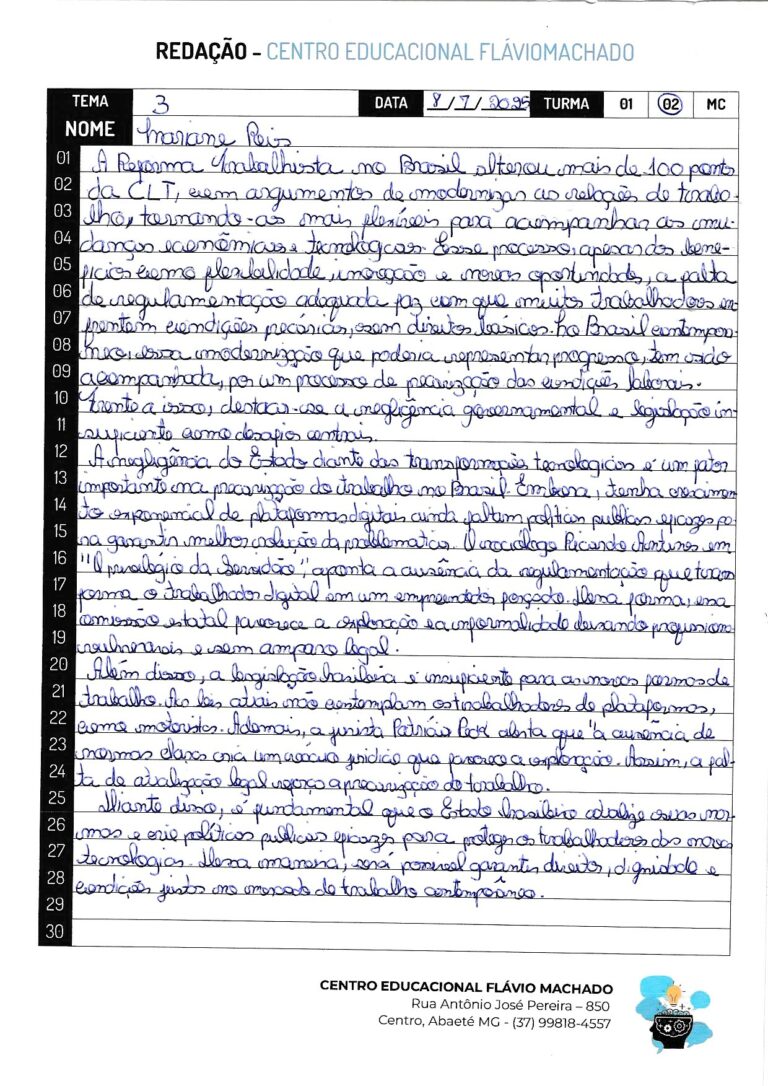 REDAÇÃO - CENTRO EDUCACIONAL FLÁVIOMACHADO
TEMA 3 DATA 8/7/2025 TURMA 01 02 MC
NOME Mariane Reis
01 A Reforma Trabalhista no Brasil alterou mais de 100 pontos
02 da CLT, com argumentos de modernizar as relação de traba-
03 lho, tornando-as mais flexíveis para acompanhar as mu-
04 danças econômicas e tecnológicas. Esse processo, apesar dos bene-
05 fícios como flexibilidade, inovação e novas oportunidades, a falta
06 de regulamentação adequada faz com que muitos trabalhadores en
07 frentem condições precárias, sem direitos básicos. No Brasil contempor-
08 âneo, essa modernização que poderia representar, progresso, tem sido
09 acompanhada, por um processo de precarização das condições laborais.
10 Frente a isso, destacar-se a negligência governamental e legislação in-
11 suficiente como desafios centrais.
12 A negligência do Estado diante das transformações tecnologicias é um fator
13 importante na precarização do trabalho no Brasil. Embora, tenha crescimen-
14 to exponencial de plataformas digitais ainda faltam políticas publicas eficazes pa-
15 ra garantir melhor solução da problematica. O sociólogo Ricardo Antunes em
16 "O privilégio da Servidão", aponta a ausência da regulamentação que trans
17 forma o trabalhador digital em um empreendedor forçado. Dessa forma, essa
18 omissão estatal favorece a exploração e a informalidade deixando profissionais
19 vulneráveis e sem amparo legal.
20 Além disso, a legislação brasileira é insuficiente para as novas formas de
21 trabalho. As leis atuais não contemplam os trabalhadores de plataformas,
22 como motoristas. Ademais, a jurista Patrícia Peck alerta que "a ausência de
23 normas claras cria um vácuo jurídico que favorece a exploração. Assim, a fal-
24 ta de atualização legal reforça a precarização do trabalho.
25 Diante disso, é fundamental que o Estado brasileiro atualize suas nor-
26 mas e crie políticas publicas eficazes para proteger os trabalhadores das novas
27 tecnologias. Dessa maneira, será possível garantir direitos, dignidade e
28 condições justas no mercado de trabalho contemporâneo.
29
30
CENTRO EDUCACIONAL FLÁVIO MACHADO
Rua Antônio José Pereira – 850
Centro, Abaeté MG - (37) 99818-4557